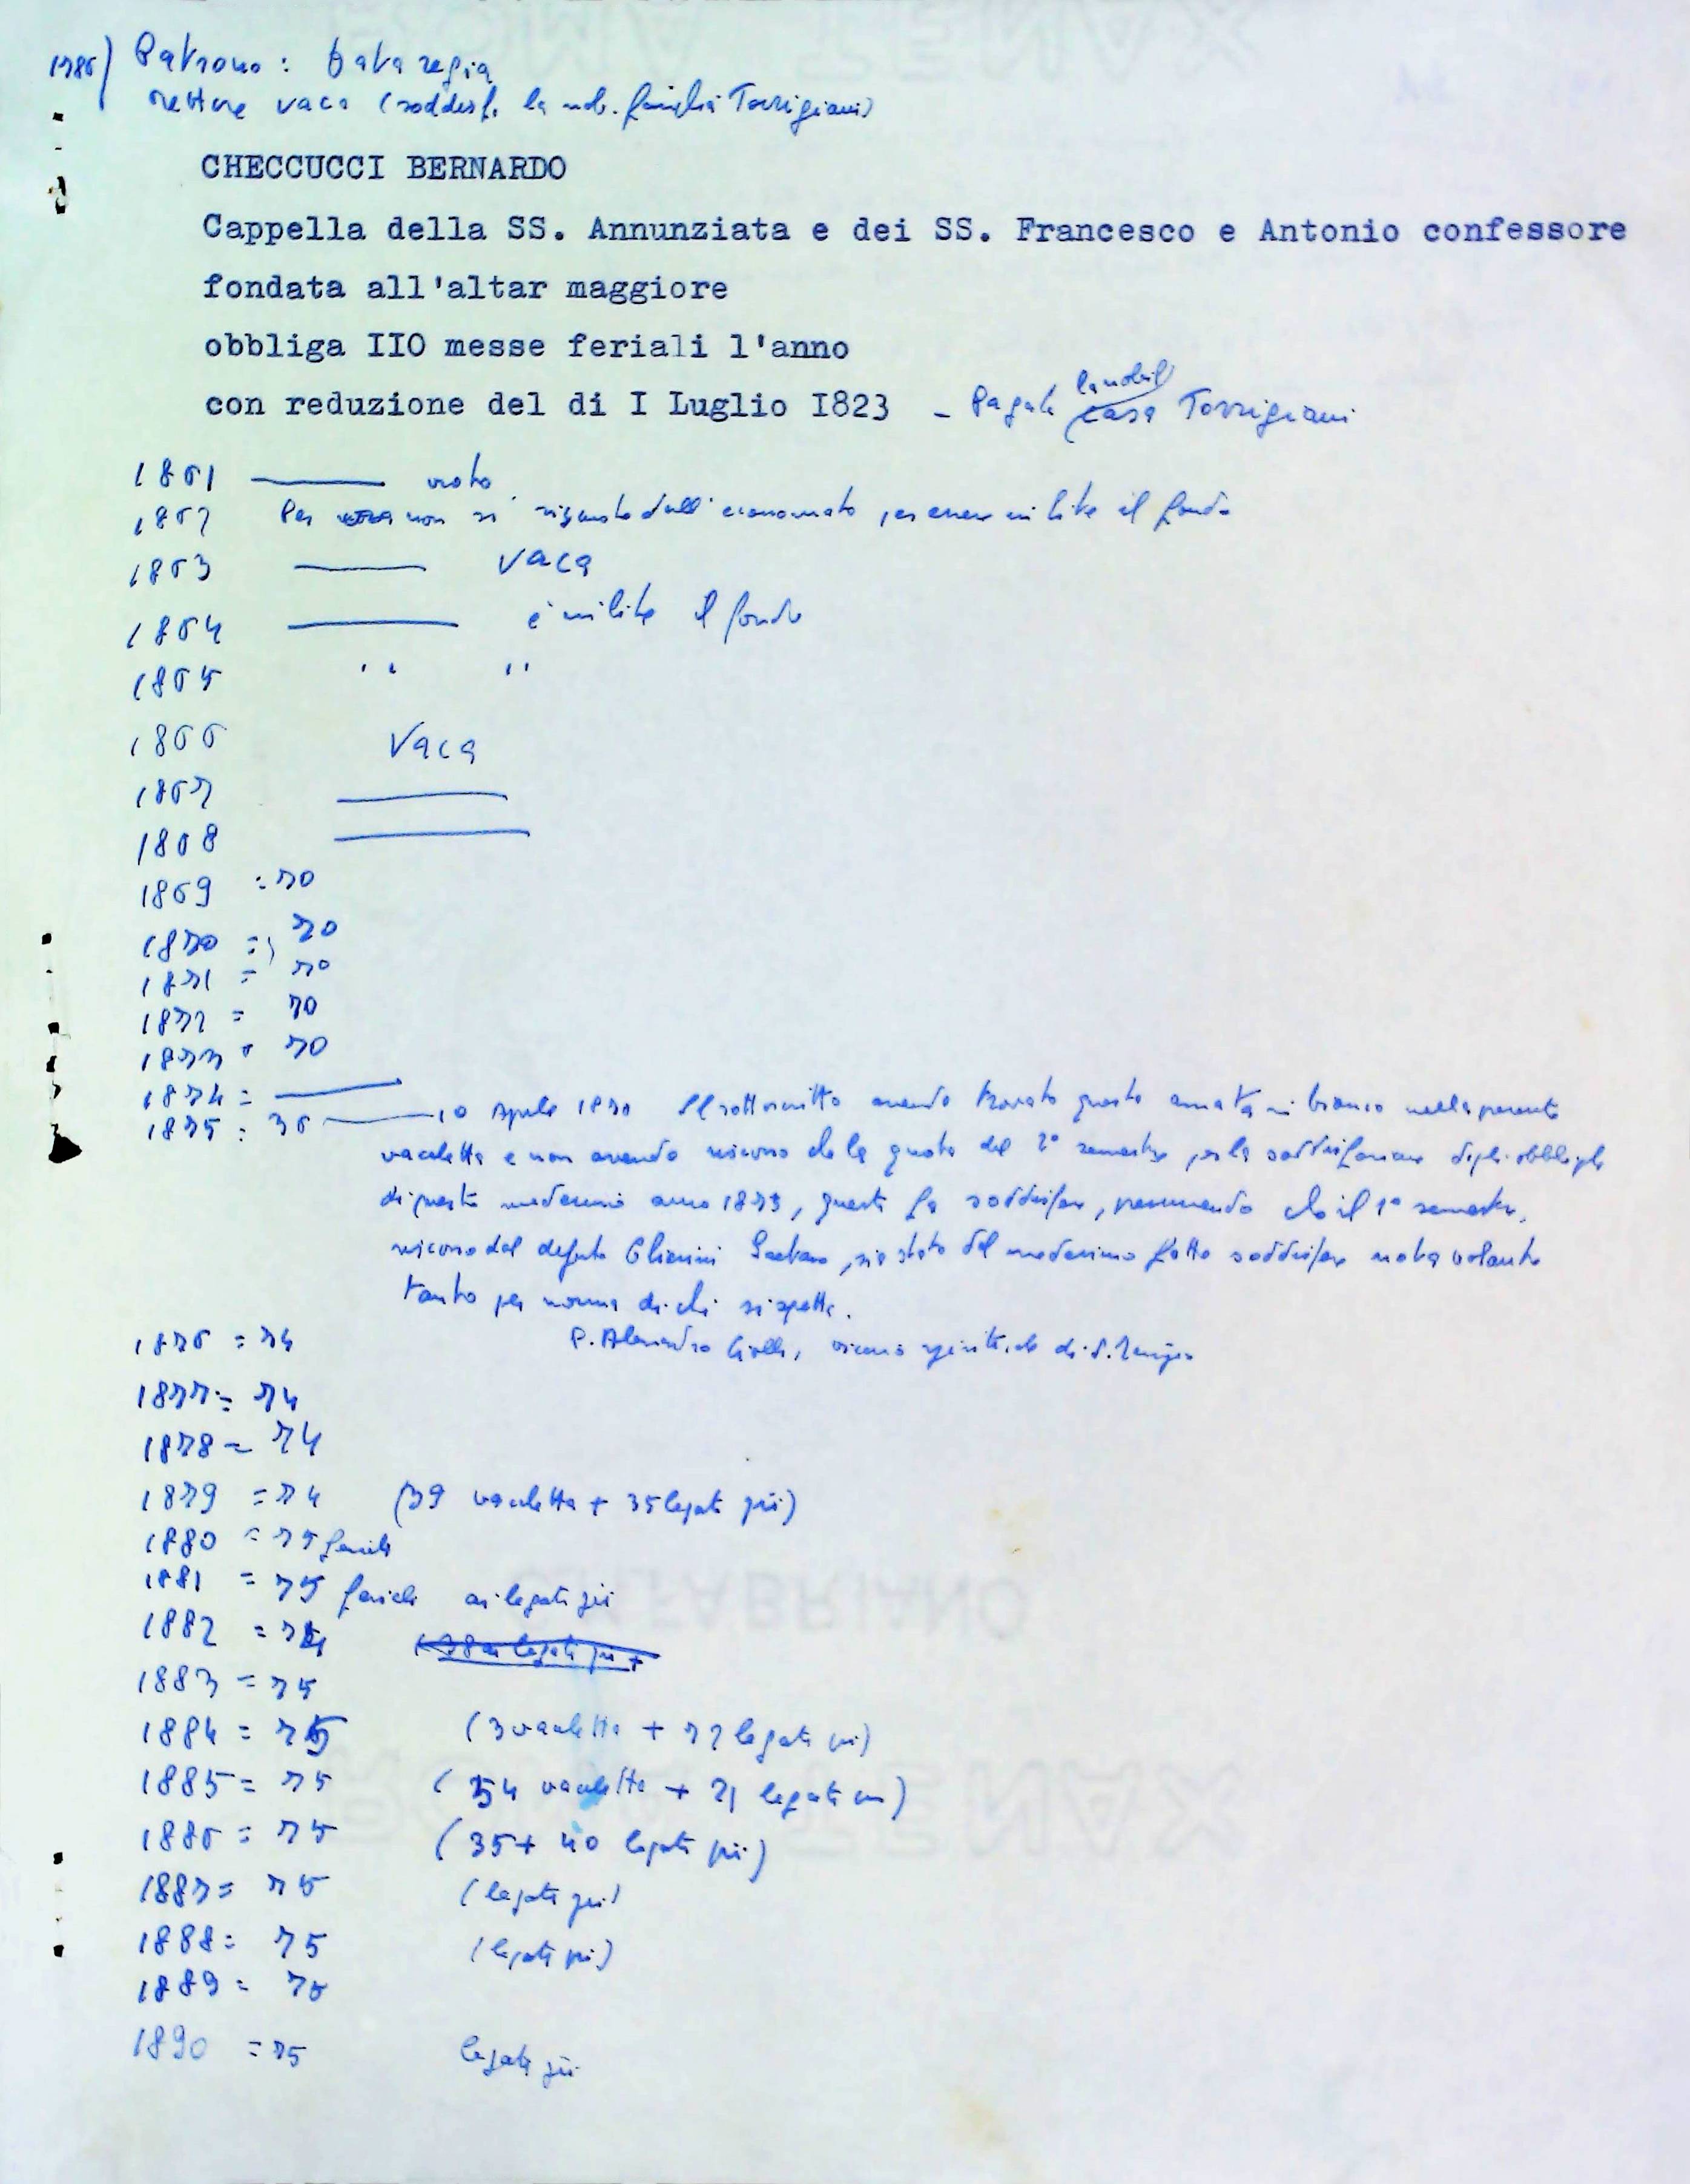 1786) Patrono: Data regia
rettore vaca (soddisf. la nob. famiglia Torrigiani)
CHECCUCCI BERNARDO
Cappella della SS. Annunziata e dei SS. Francesco e Antonio confessore
fondata all'altar maggiore
obbliga IIO messe feriali l'anno
la nobil
con reduzione del di I Luglio I823 - Pagate casa Torrigiani
1861 vuoto
1862 Per non si dall'economato per essere in lite il fondo
1863 vaca
1864 è in lite il fondo
1865 " "
1866 Vaca
1867
1868
1869 = 70
1870 = 70
1871 = 70
1872 = 70
1873 = 70
1874 =
1875 = 36 10 Aprile Il sottoscritto avendo trovato questa annata in bianco nella presente
vacchetta e non avendo riscosso che la quota del 2° semestre per la soddisfazione degli obblighi
di questo medesimo anno 1873, questi fa soddisfare, presumendo che il 1° semestre,
riscosso dal defunto Gaetano, sia stato dal medesimo fatto soddisfare nota volante
tanto per norma di chi si spetta.
1876 = 74 P. Alessandro vicario spirituale di S.
1877 = 74
1878 = 74
1879 = 74 (39 vacchetta + 35 legati pii)
1880 = 75 feriali
1881 = 75 feriali ai legati pii
1882 = 74
1883 = 75
1884 = 75 (3 vacchetta + 72 legati pii)
1885 = 75 (54 vacchetta + 21 legati pii)
1886 = 75 (35 + 40 legati pii)
1887 = 75 (legati pii)
1888 = 75 (legati pii)
1889 = 75
1890 = 75 legati pii
ROMA TENAX
C.M.FABRIANO
ROMA TENAX